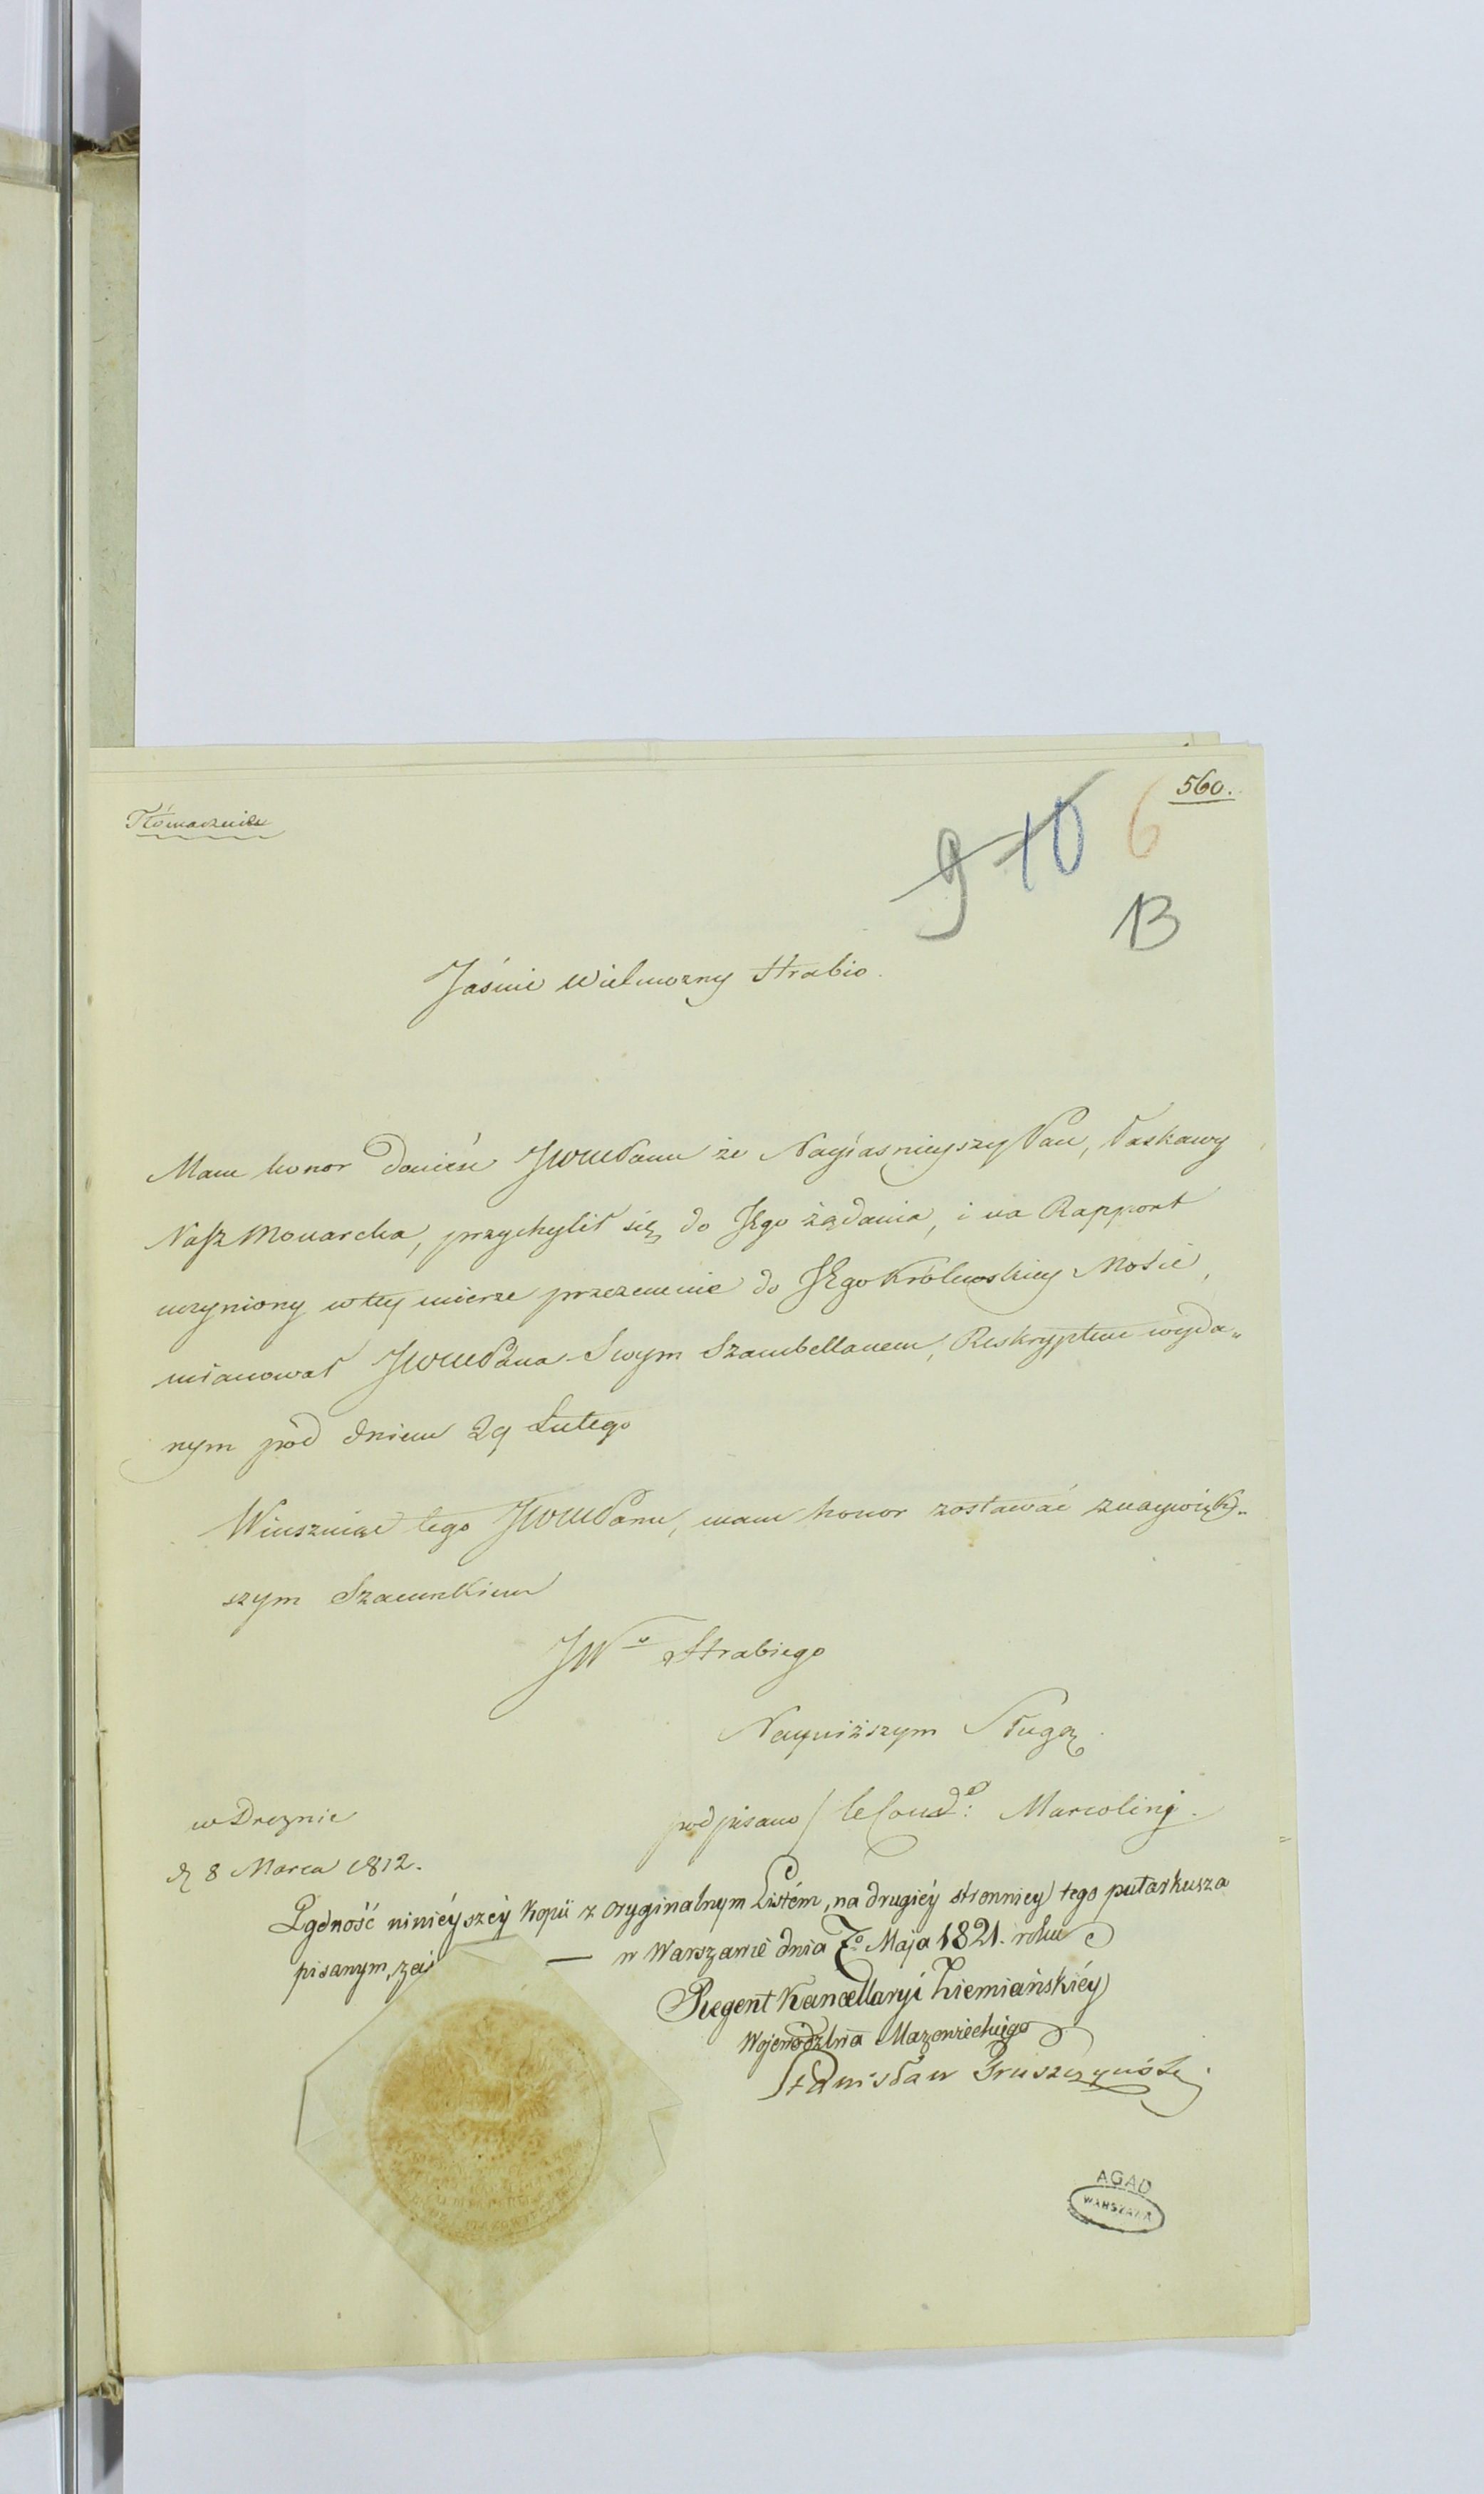 560.
Tłómaczenie
9 10 6
13
Jaśnie Wielmożny Hrabio.
Mam honor donieść JWWPanu że Nayiasnieyszy Pan, Łaskawy
Nasz Monarcha, przychylił się do JEgo żądania, i na Rapport
uczyniony w tey mierze przezemnie do JEgo Królewskiey Mości,
mianował JWWPana Swym Szambellanem, Reskryptem wyda„
nym pód dniem 29 Lutego
Winszuiąc tego JWWPanu, mam honor zostawać z naywięk„
szym Szacunkiem
JWo Hrabiego
Nayniższym Sługą.
w Dreznie
podpisano / le Cond: Marcolini.
d 8 Marca 1812.
Zgodność ninieyszéy kopii z oryginalnym Listém, na drugiéy stronnicy tego pułarkusza
pisanym, zaś — w Warszawie dnia 7o Maja 1821. roku
Regent Kancellaryi Ziemiańskiéy
Województwa Mazowieckiego
Stanisław Gruszczyński
AGAD
WARSZAWA